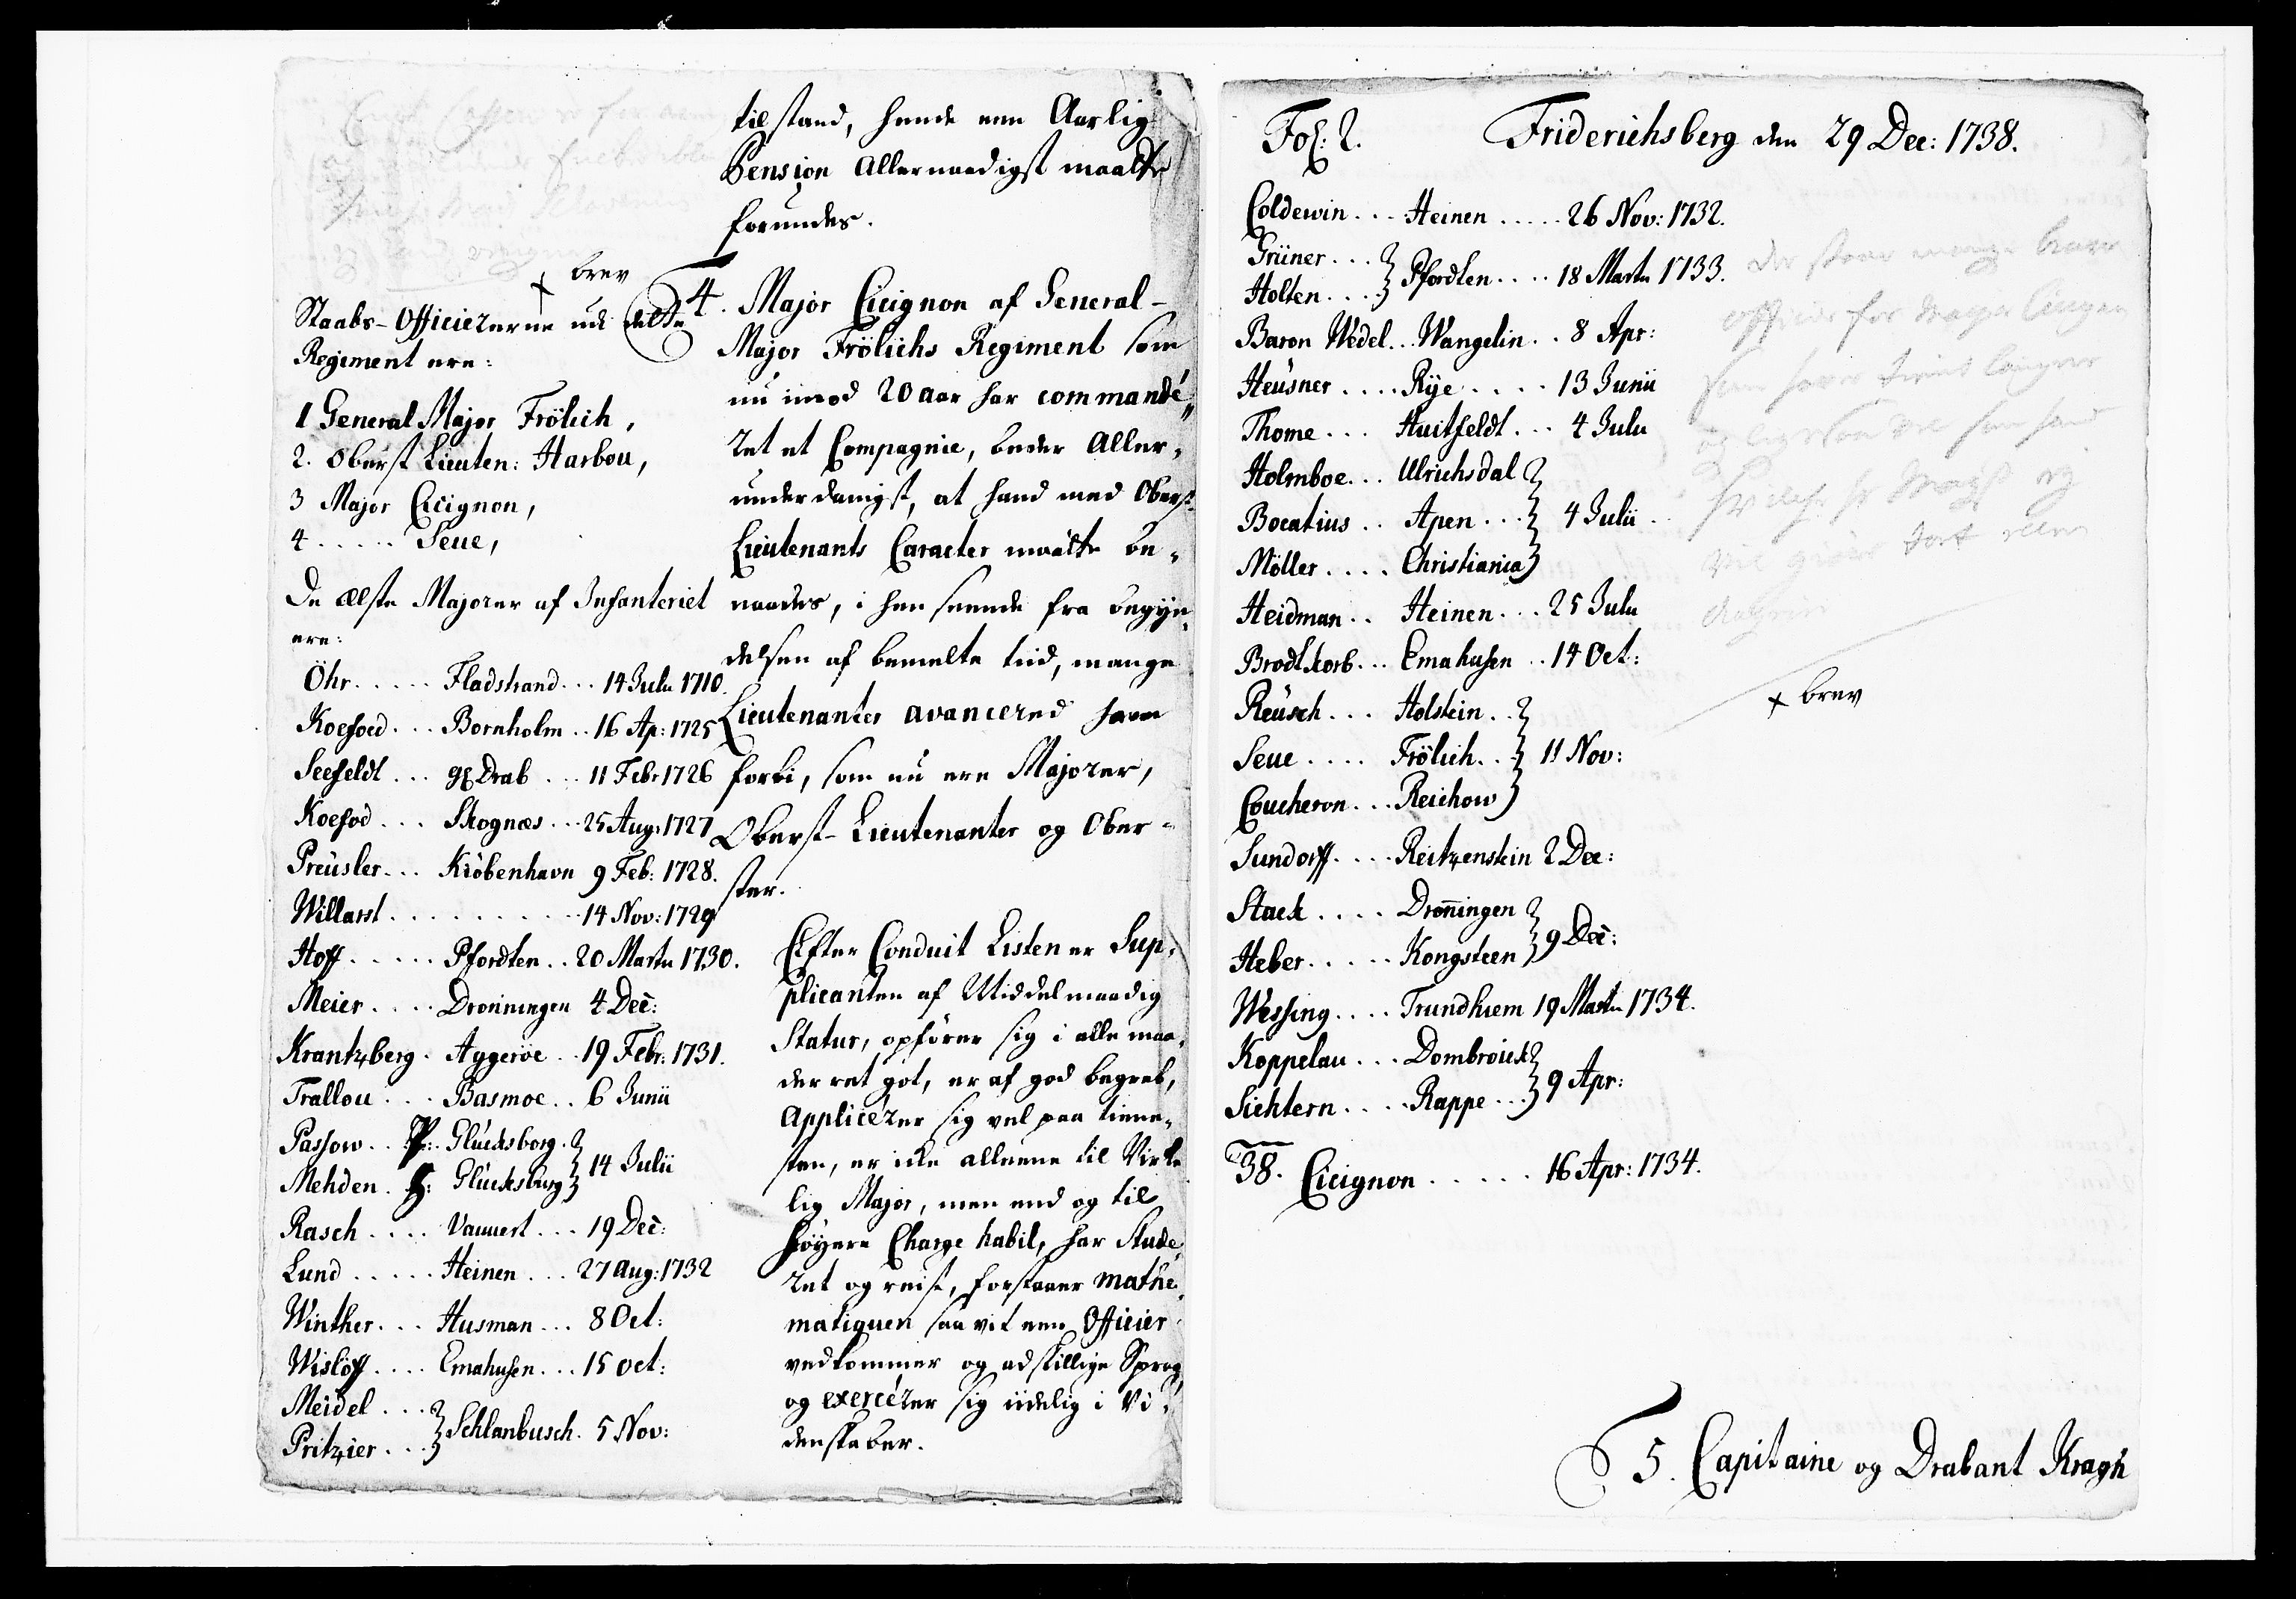 tilstand, hende een Aarlig
Pension Allernaadigst maatte
forundes.
x brev
Staabs-Officiererne udi dette
Regiment ere:
1 General Major Frölich,
2. Oberst Lieuten: Harbou,
3 Major Cicignon,
4 ..... Seue,
De ælste Majorer af Infanteriet
ere:
Öhr ..... Fladstrand ... 14 Julii 1710.
Koefoed ... Bornholm .. 16 Ap: 1725
Seefeldt ... Drab ... 11 Febr 1726
Koefod ... Skognæs ... 25 Aug: 1727
Preüsler ... Kiöbenhavn 9 Feb: 1728.
Willarst .......... 14 Nov: 1729
Hoff ..... Pfordten .. 20 Martii 1730.
Meier .... Dronningen 4 Dec:
Krantzberg . Aggeröe .. 19 Febr: 1731.
Trallou ... Basmoe .. 6 Junii
Passow .. Glücksborg.
Mehden . Glücksburg } 14 Julii
Rasch .... Vauuert ... 19 Dec:
Lund ..... Heinen ... 27 Aug: 1732
Winther ... Husman ... 8 Oct:
Wislöff .... Emahusen ... 15 Oct:
Meidel ...
Pritzier ... } Schlanbusch. 5 Nov:
4. Major Cicignon af General-
Major Frölichs Regiment som
nu imod 20 Aar har commandé-
ret et Compagnie, beder Aller-
underdanigst, at hand med Oberst-
Lieutenants Caracter maatte be-
naades, i henseende fra begyn-
delsen af bemelte tiid, mange
Lieutenanter avancered ham
forbi, som nu ere Majorer,
Oberst-Lieutenanter og Ober-
ster.
Efter Conduit Listen er Sup-
plicanten af Middelmaadig
Statur, opförer sig i alle maa-
der ret got, er af god begreb,
Applicérer sig vel paa tiene-
sten, er icke alleene til Virke-
lig Major, men end og til
höyere Charge habil, har Stude-
ret og reist, forstaaer mathe-
matiquen saa vit een Officier
vedkommer og adskillige Sprog
og exercérer sig iidelig i Vi-
denskaber.
Fol: 2. Friderichsberg den 29 Dec: 1738.
Coldewin ... Heinen ..... 26 Nov: 1732.
Grüner ...
Holten .... } Pfordten .... 18 Martii 1733.
Baron Wedel .. Wangelin .. 8 Apr:
Heüsner .... Rÿe ..... 13 Junii
Thome ... Huitfeldt ... 4 Julii
Holmboe ... Ulrichsdal
Bocatius .. Apen ... } 4 Julii
Möller .... Christiania
Heidman .. Heinen ... 25 Julii
Brodtkorb ... Emahusen .. 14 Oct:
Reüsch ... Holstein ..
Seue .... Frölich .. } 11 Nov:
Coucheron ... Reichow
Sundorff .... Reitzenstein 2 Dec:
Stack .... Dronningen
Heber ..... Kongsteen } 9 Dec:
Wessing .... Trundhiem 19 Martii 1734.
Koppelau ... Dombroick
Sichtern .... Rappe ... } 9 Apr:
38. Cicignon ...... 16 Apr: 1734.
der staar mange brave
officier for
x brev
5. Capitaine og Drabant Kragh